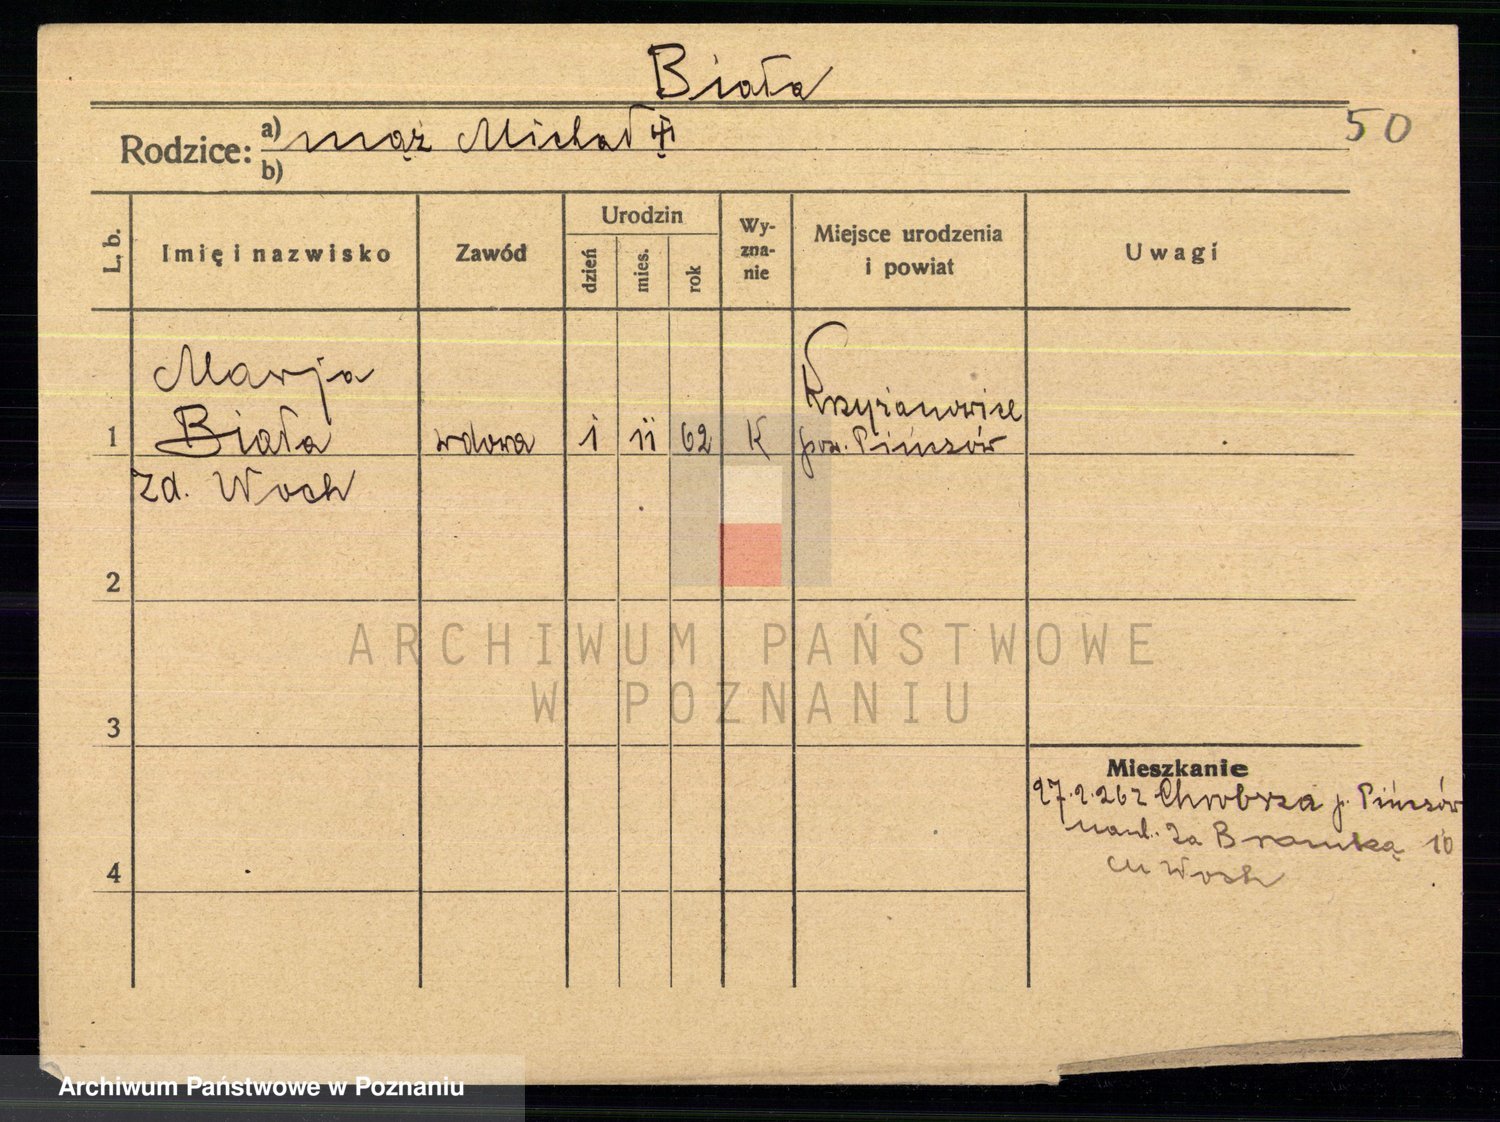 Biała
50
Rodzice: a) mąż Michał
b)
L. b.
Imię i nazwisko
Zawód
Urodzin
dzień
mies.
rok
Wy-
zna-
nie
Miejsce urodzenia
i powiat
Uwagi
Marja
1 Biała wdowa 1 11 62 K Krzyżanowice
pow. Pińczów
zd. Woch
2
3
4
Mieszkanie
Chrobrza p. Pińczów
Za Bramką 10
Woch
ARCHIWUM PAŃSTWOWE
W POZNANIU
Archiwum Państwowe w Poznaniu